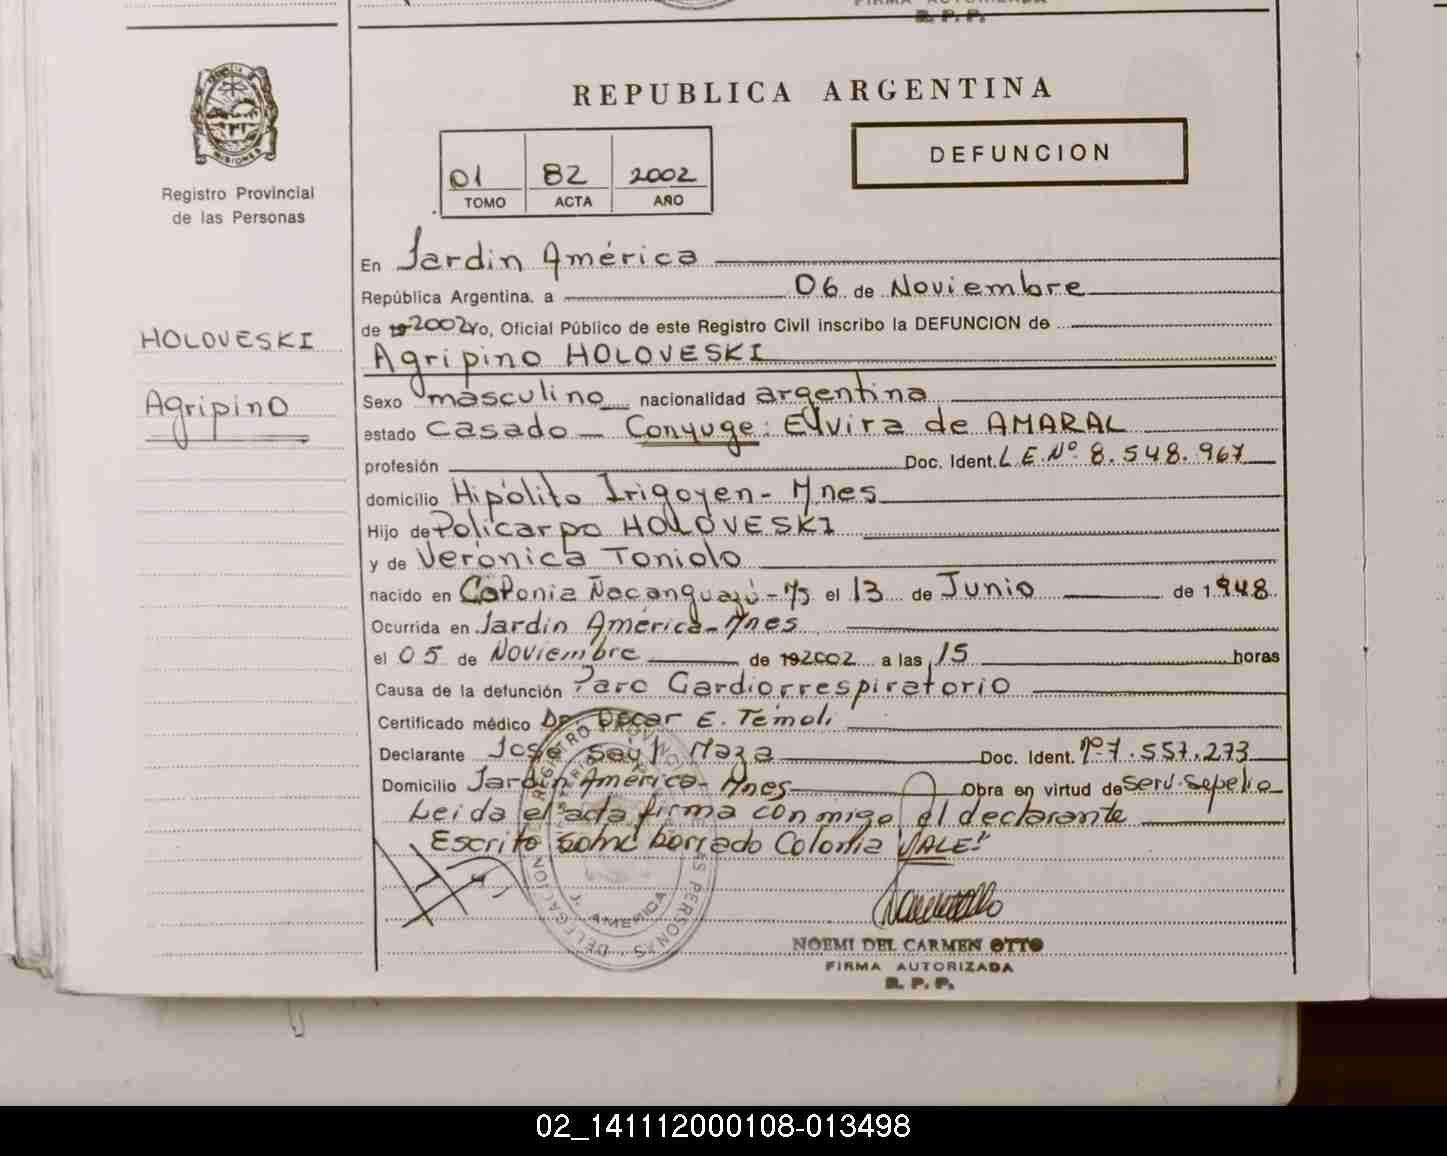 REPUBLICA ARGENTINA
DEFUNCION
01 82 2002
TOMO ACTA AÑO
PROVINCIA DE MISIONES
Registro Provincial
de las Personas
HOLOVESKI
Agripino
En Jardin América
República Argentina, a 06 de Noviembre
de 19 2002 yo, Oficial Público de este Registro Civil inscribo la DEFUNCION de
Agripino HOLOVESKI
Sexo masculino nacionalidad argentina
estado casado - Conyuge: Elvira de AMARAL
profesión Doc. Ident. L.E.Nº 8.548.967
domicilio Hipólito Irigoyen - Mnes
Hijo de Policarpo HOLOVESKI
y de Verónica Toniolo
nacido en Colonia Ñacanguazú - Ms el 13 de Junio de 1.948
Ocurrida en Jardin América - Mnes
el 05 de Noviembre de 19 2002 a las 15 horas
Causa de la defunción Paro Cardiorrespiratorio
Certificado médico Dr. Oscar E. Témoli
Declarante José Maza Doc. Ident. Nº 7.557.273
Domicilio Jardin América - Mnes Obra en virtud de Serv. Sepelio
Leida el acta firma conmigo el declarante
Escrito sobre borrado Colonia VALE"
REGISTRO PROVINCIAL DE LAS PERSONAS - DELEGACION
J. AMERICA
NOEMI DEL CARMEN OTTO
FIRMA AUTORIZADA
R. P. P.
02_141112000108-013498